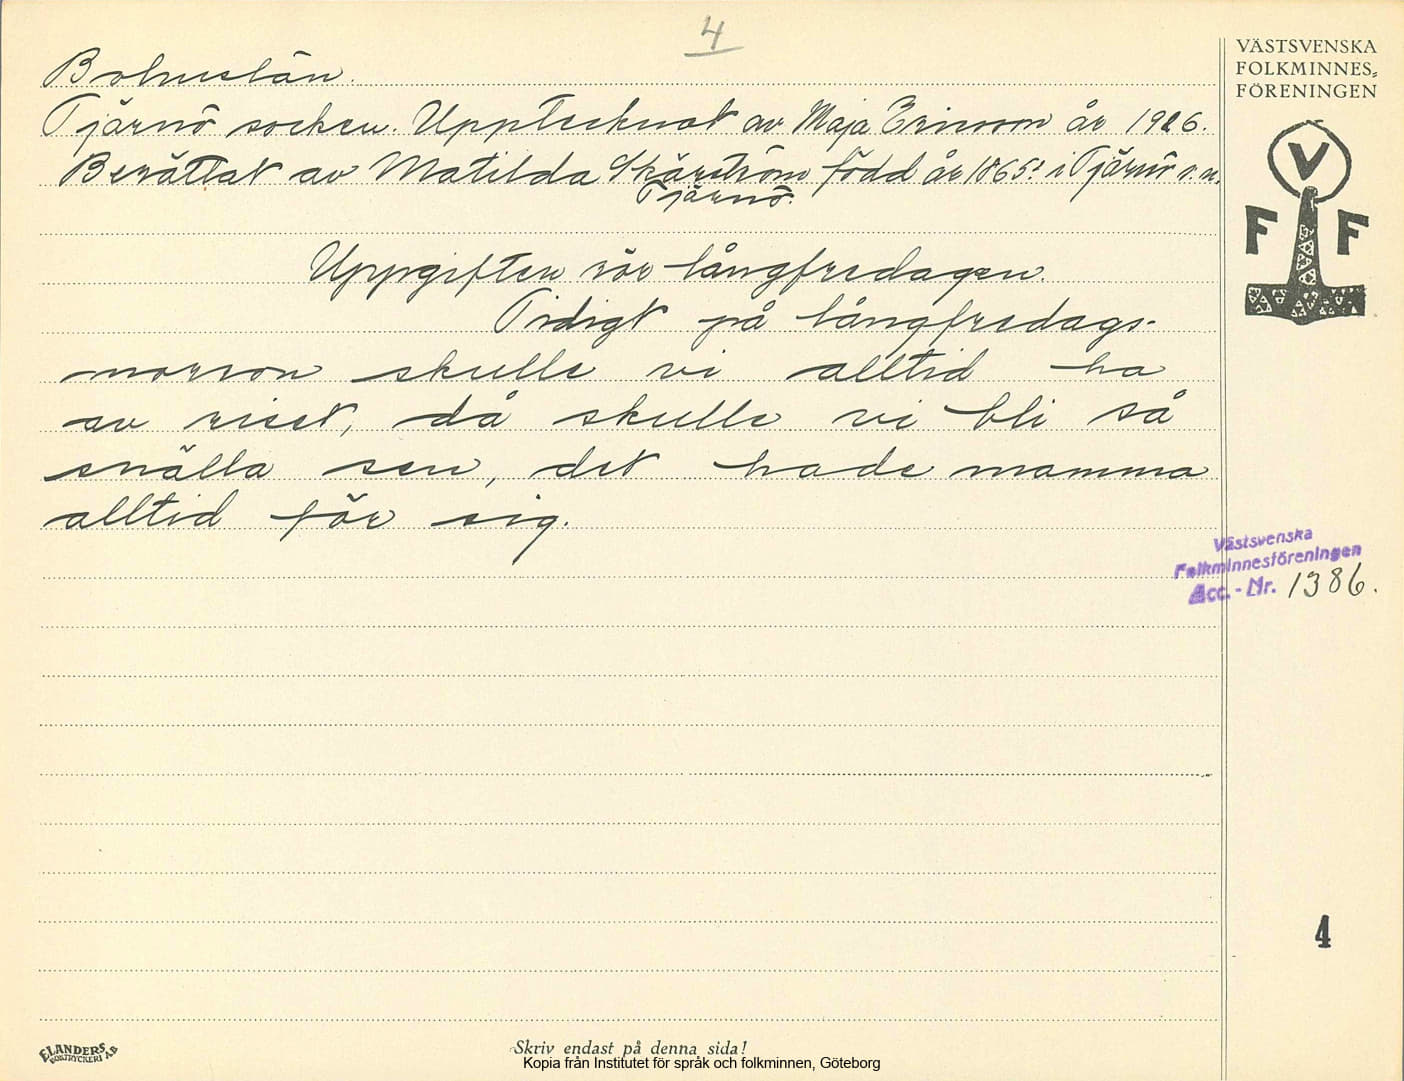 4
VÄSTSVENSKA
FOLKMINNES-
FÖRENINGEN
Bohuslän.
Tjärnö socken. Upptecknat av Maja Ericsson år 1926.
Berättat av Matilda Skärström född år 1865 i Tjärnö s.n.
Tjärnö.
Uppgiften rör långfredagen.
Tidigt på långfredags-
morron skulle vi alltid ha
av riset, då skulle vi bli så
snälla sen, det hade mamma
alltid för sig.
V
F F
Västsvenska
Folkminnesföreningen
Acc.-Nr. 1386.
4
ELANDERS
BOKTRYCKERI AB
Skriv endast på denna sida!
Kopia från Institutet för språk och folkminnen, Göteborg